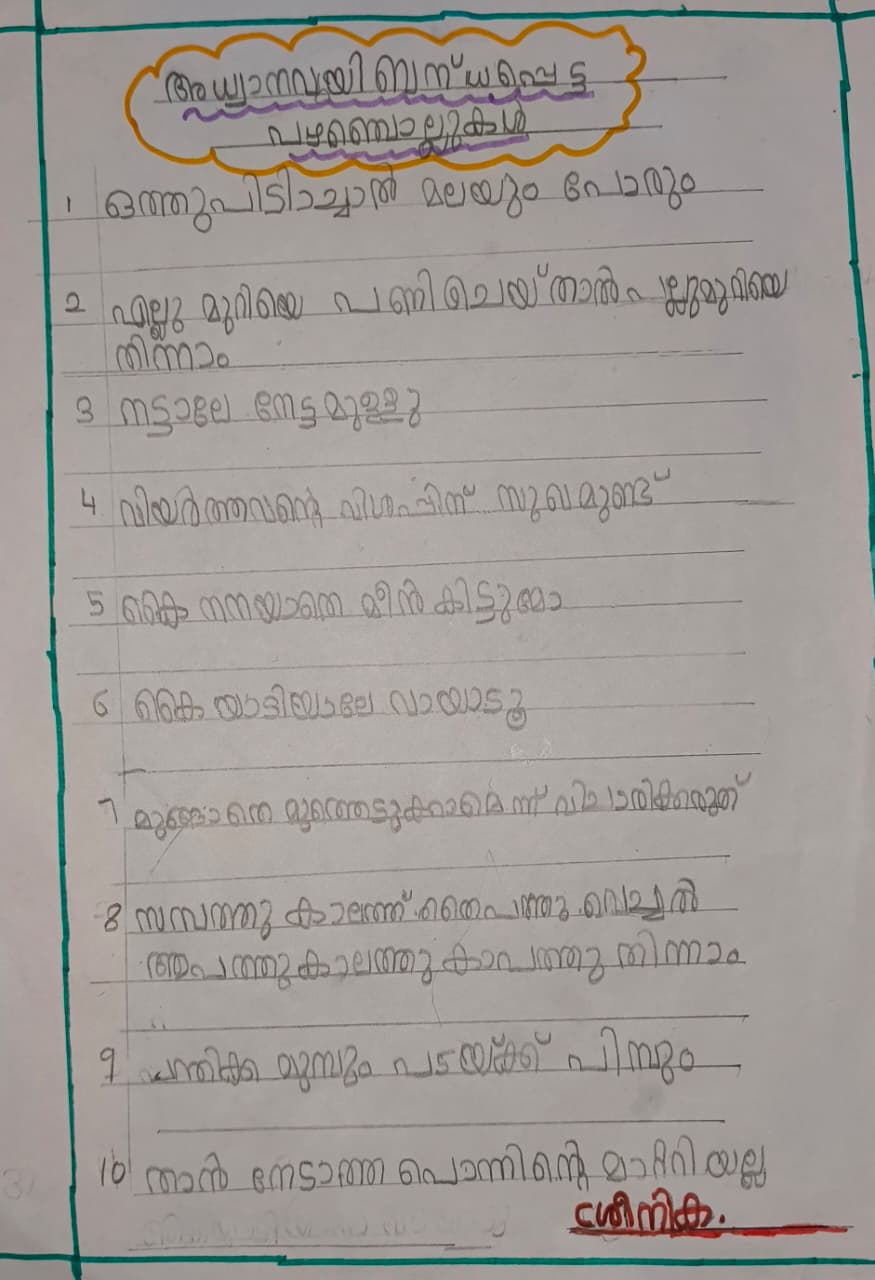 അധ്വാനവുമായി ബന്ധപ്പെട്ട
പഴഞ്ചൊല്ലുകൾ
1 ഒത്തുപിടിച്ചാൽ മലയും പോരും
2 എല്ലു മുറിയെ പണി ചെയ്താൽ പല്ലുമുറിയെ
തിന്നാം
3 നട്ടാലേ നേട്ടമുള്ളു
4 വിയർത്തവന്റെ വിശപ്പിന് സുഖമുണ്ട്
5 കൈ നനയാതെ മീൻ കിട്ടുമോ
6 കൈ യാടിയാലേ വായാടൂ
7 മുങ്ങാതെ മുത്തെടുക്കാമെന്ന് വിചാരിക്കരുത്
8 സമ്പത്തു കാലത്ത് തൈപത്തു വെച്ചാൽ
ആപത്തുകാലത്തു കാപത്തു തിന്നാം
9 പന്തിക്കു മുമ്പും പടയ്ക്ക് പിമ്പും
10 താൻ നേടാത്ത പൊന്നിന്റെ മാറ്ററിയില്ല